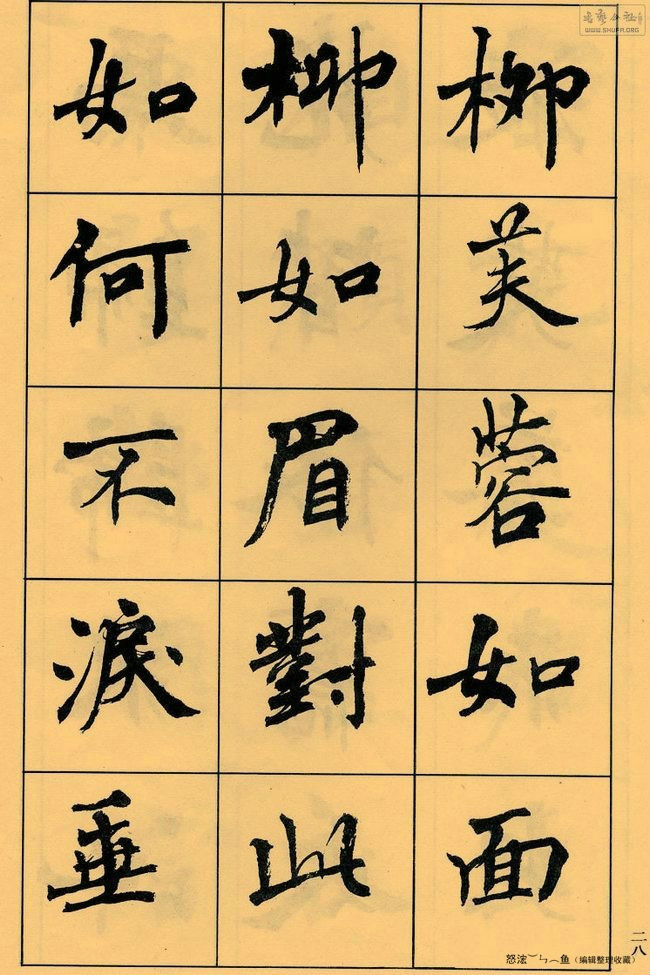 柳芙蓉如面
柳如眉對此
如何不淚垂
二八
怒浤︶ㄣ︵鱼（编辑整理收藏）
WWW.SHUFA.ORG